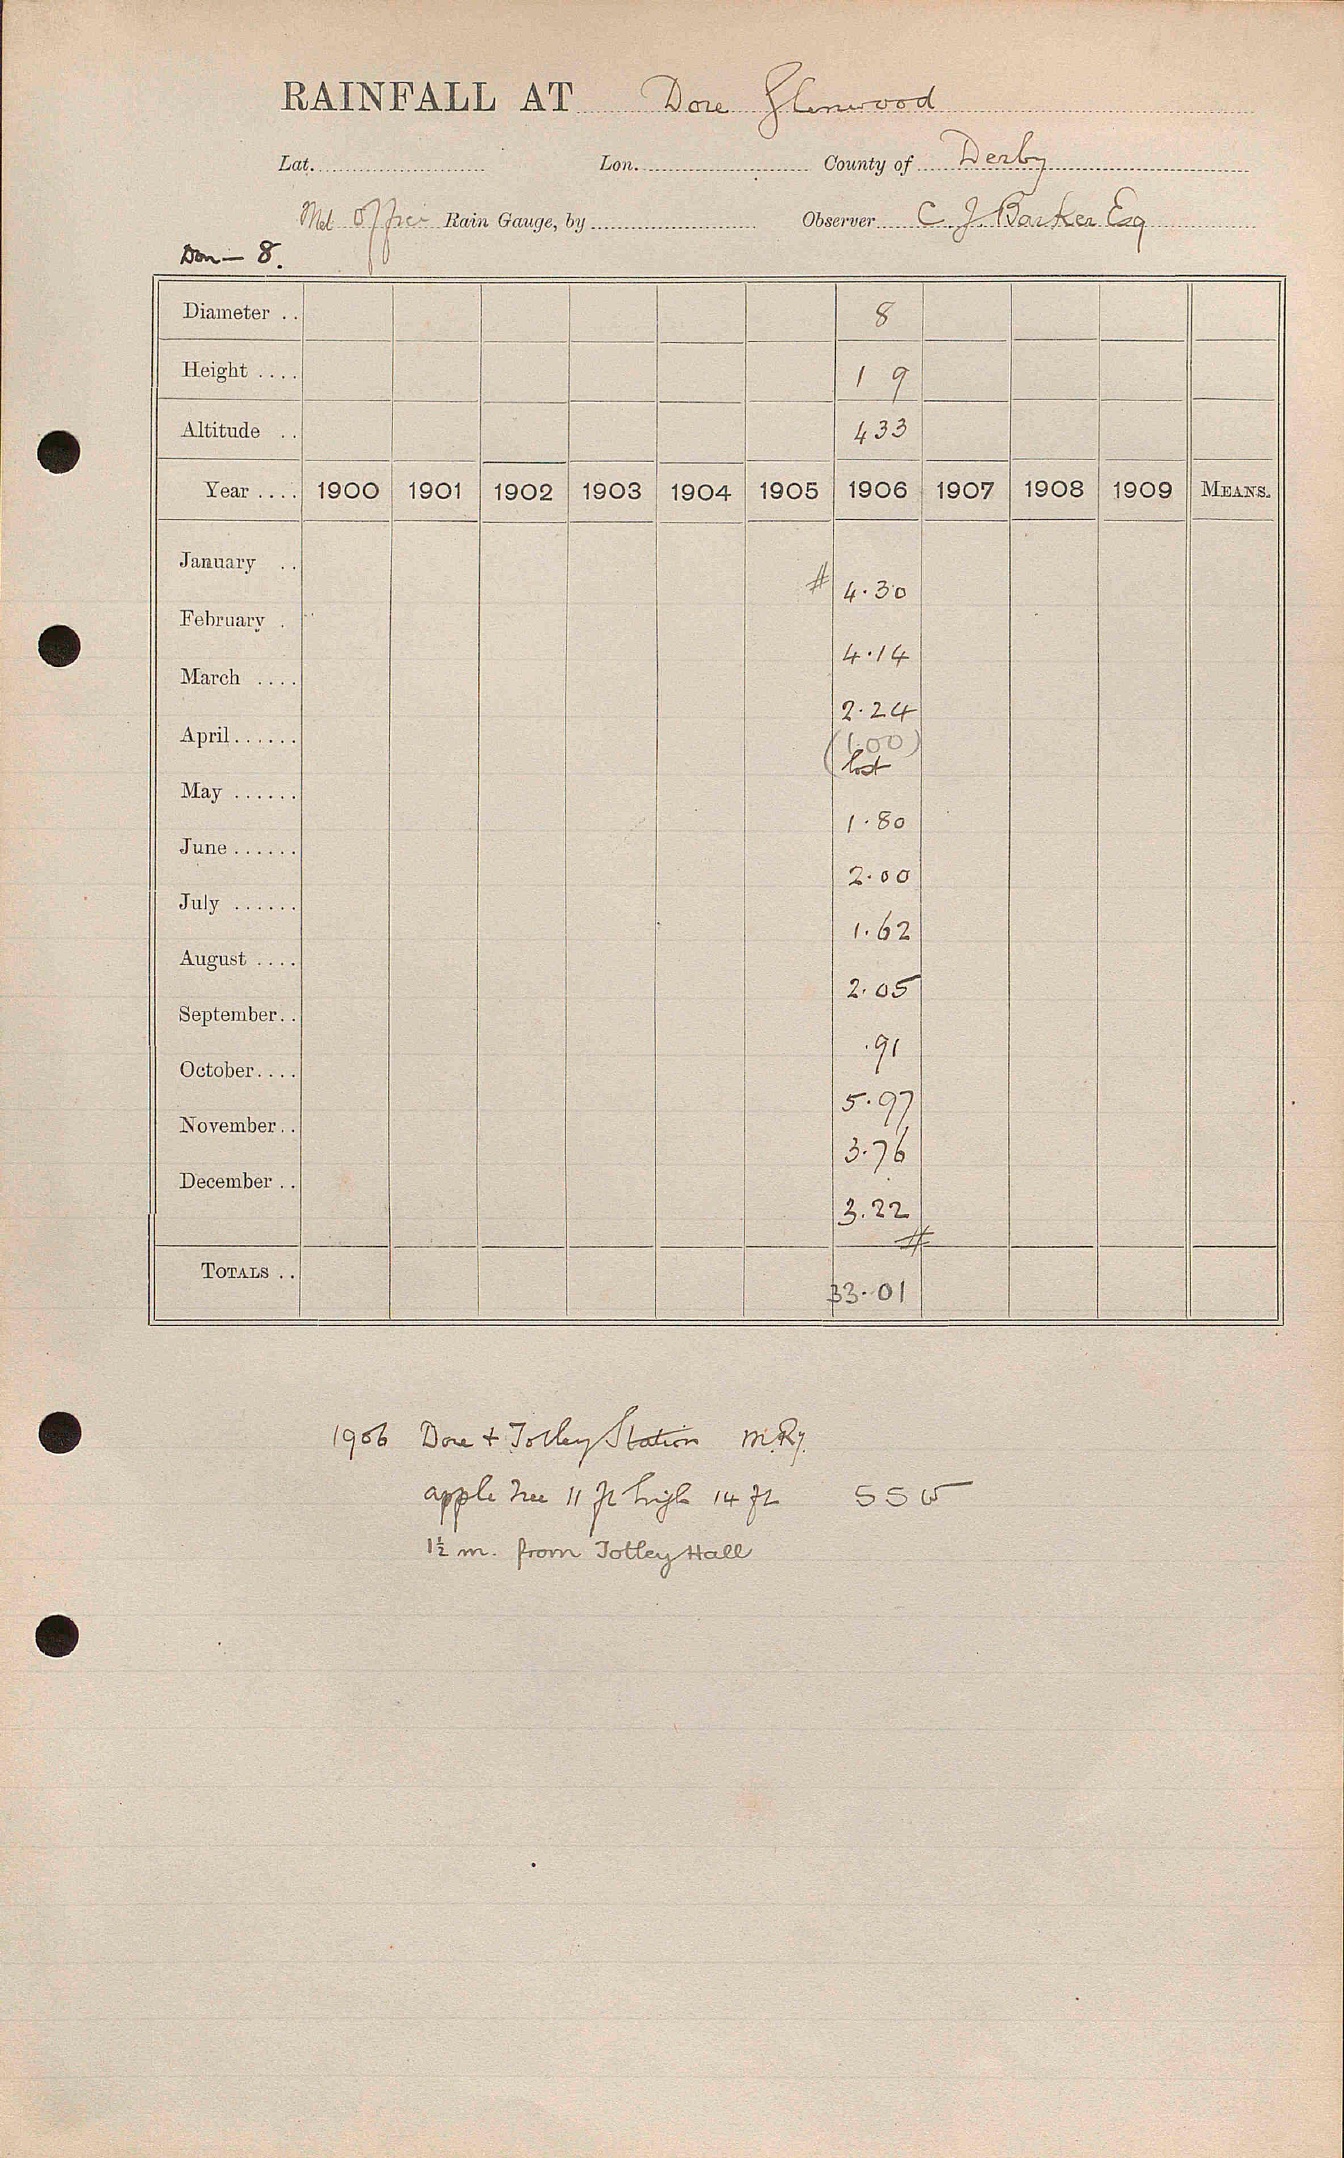 RAINFALL AT Dore Glenwood
Lat. Lon. County of Derby
Met Office Rain Gauge, by Observer C. J. Barker Esq
Don — 8.
Diameter .. 8
Height .... 1 9
Altitude .. 433
Year .... 1900 1901 1902 1903 1904 1905 1906 1907 1908 1909 MEANS.
January .. # 4.30
February . 4.14
March .... 2.24
April...... (1.00) lost
May ...... 1.80
June ...... 2.00
July ...... 1.62
August .... 2.05
September.. .91
October.... 5.97
November.. 3.76
December .. 3.22
#
TOTALS .. 33.01
1906 Dore + Totley Station M.Ry.
apple tree 11 ft high 14 ft SSW
1½ m. from Totley Hall